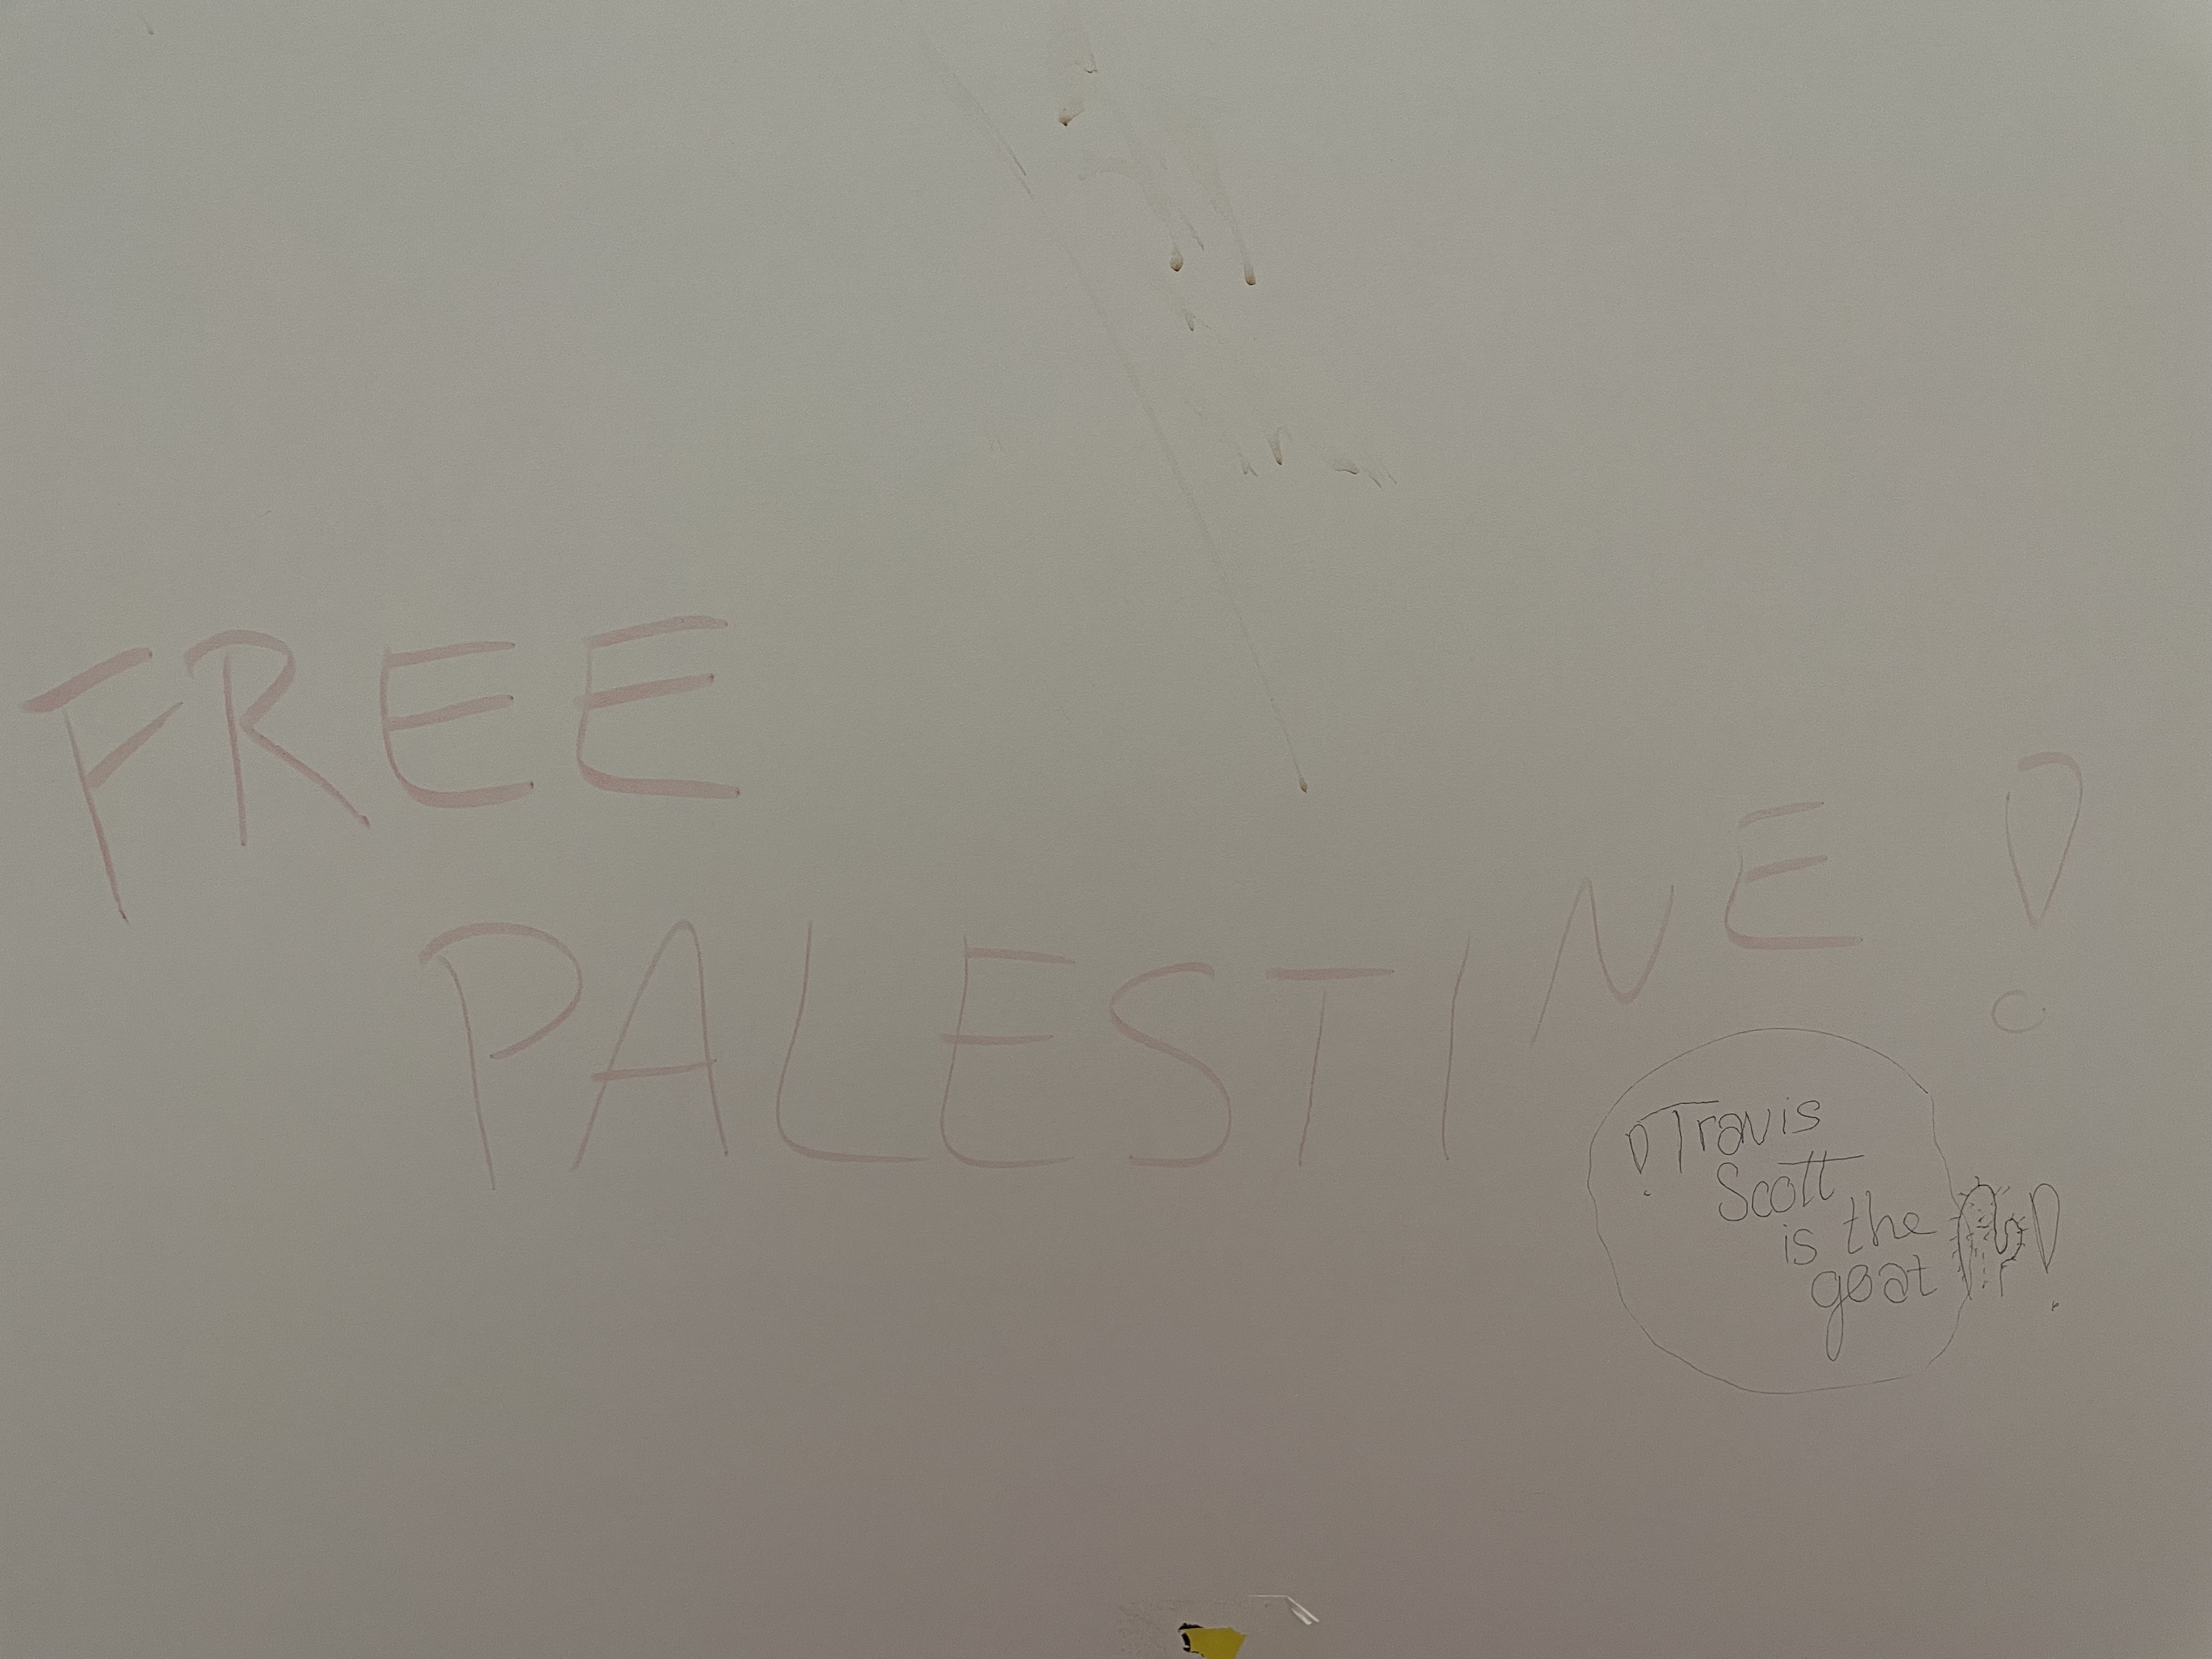 FREE
PALESTINE!
!Travis
Scott
is the
goat!